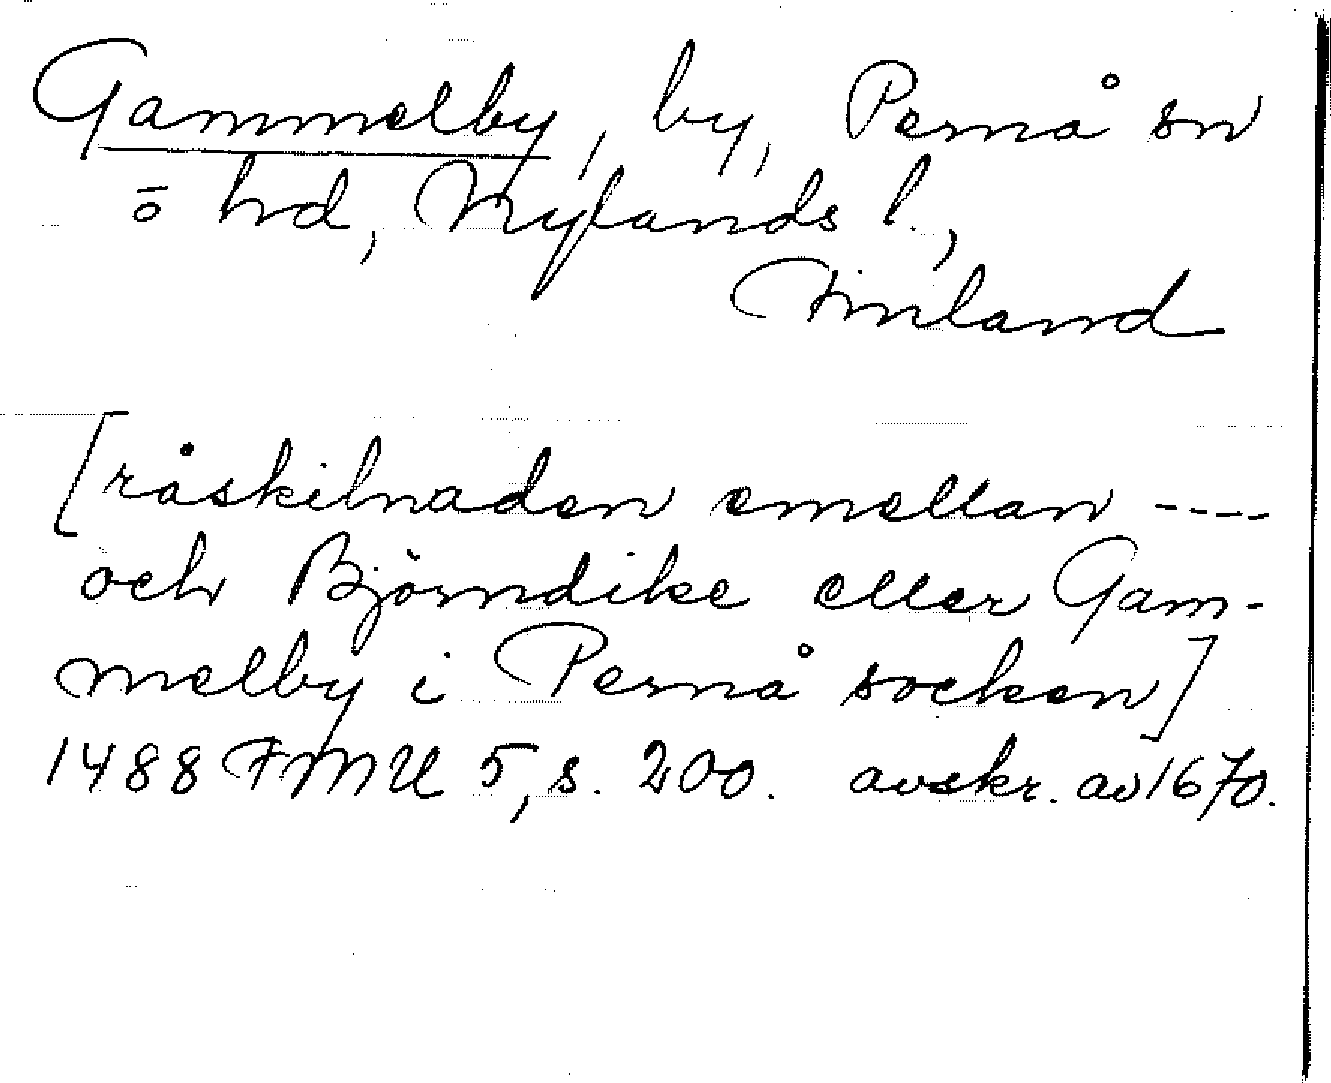 Gammelby, by, Pernå sn
ō hd, Nylands l.,
Finland
[råskilnaden emellan ----
och Björndike eller Gam-
melby i Pernå socken]
1488 FMU 5, s. 200. avskr. av 1670.